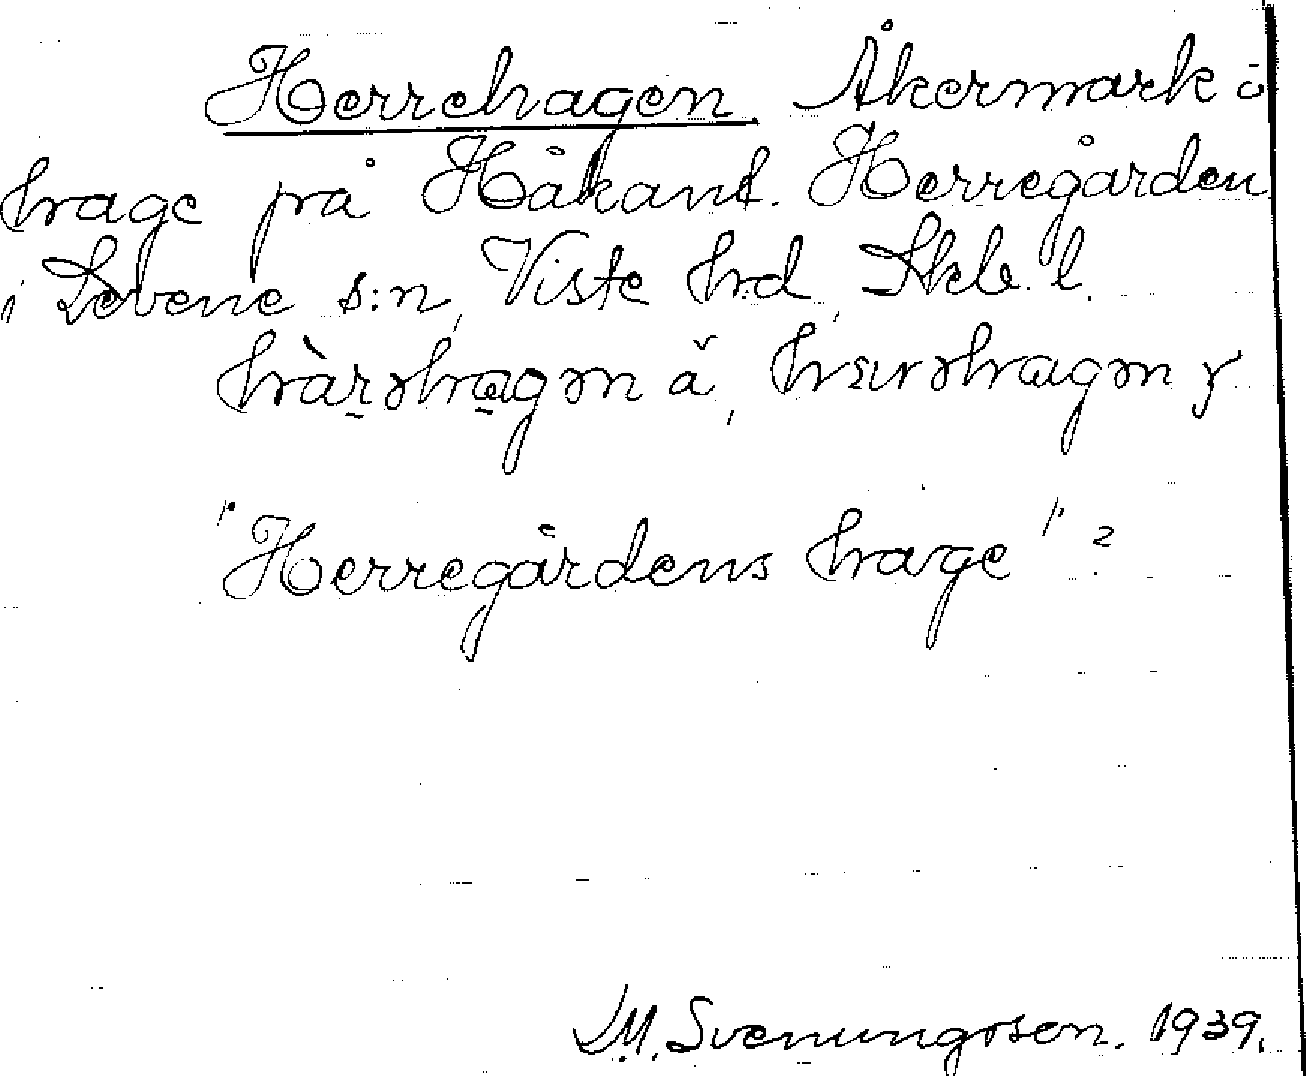 Herrehagen. Åkermark o
hage på Håkant. Herregården
i Levene s:n, Viste hd, Skb. l.
hàrəhagən ä,
"Herregårdens hage" ?
D.M. Svenungsson. 1939.